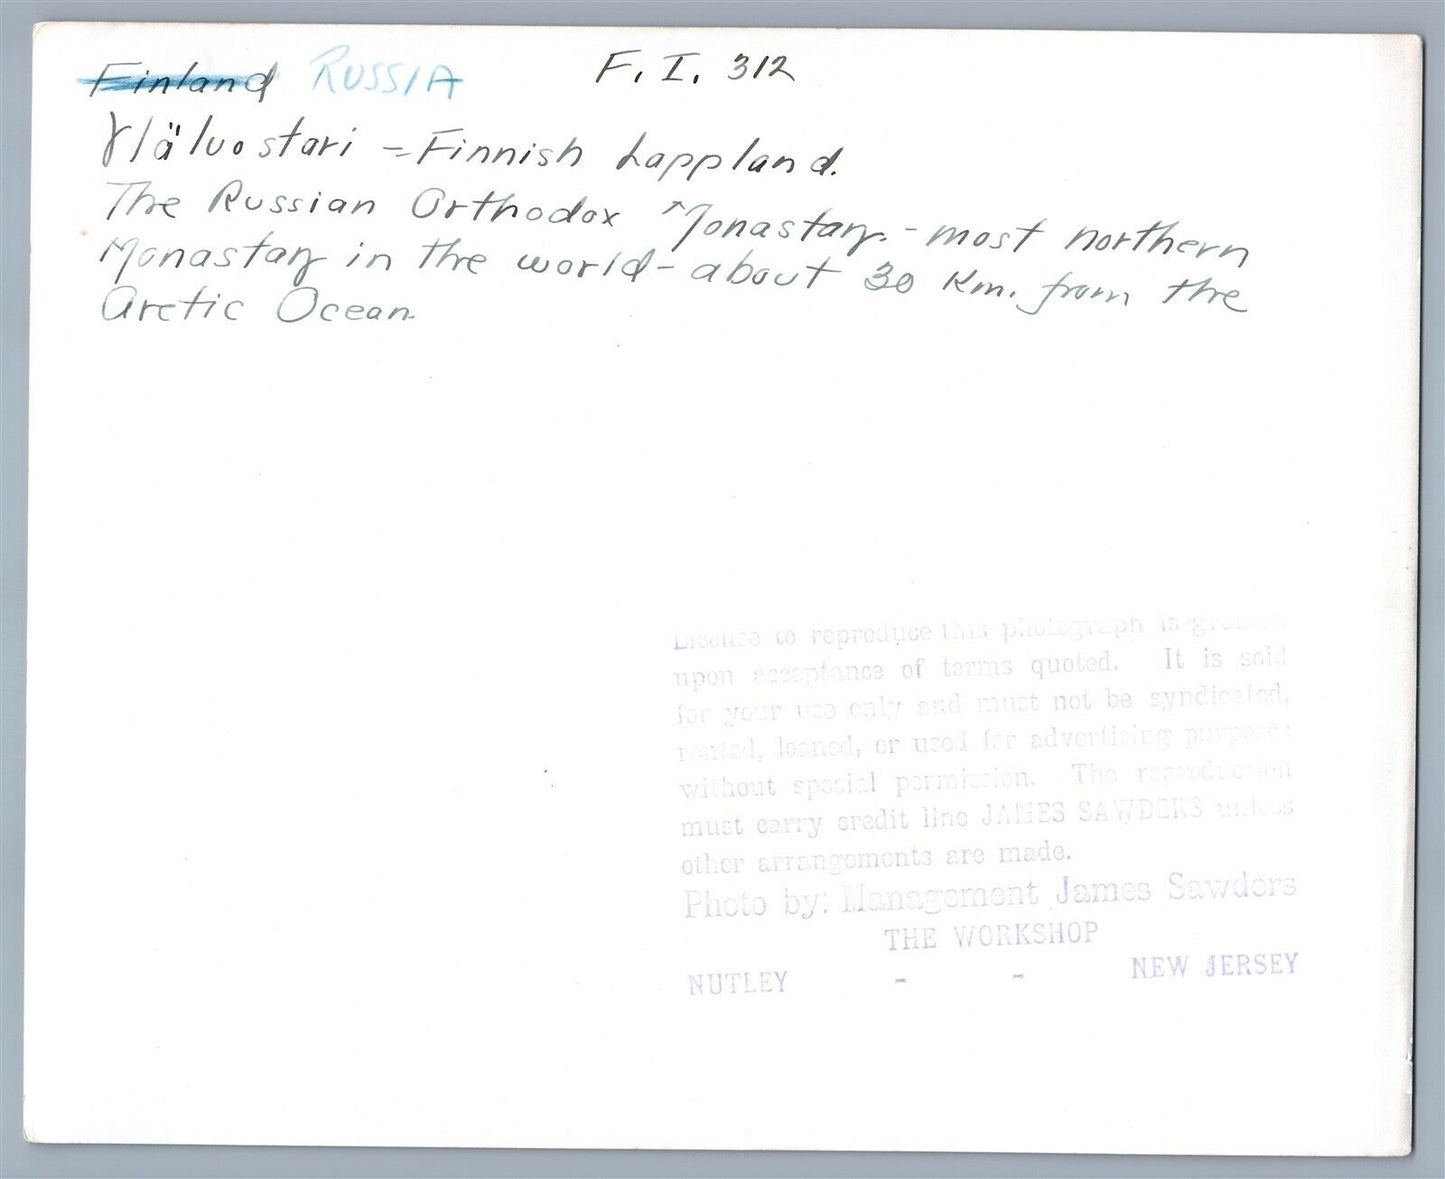 Finland RUSSIA F. I. 312
Yläluostari = Finnish Lappland.
The Russian Orthodox Monastary. - most northern
Monastary in the world - about 30 Km. from the
Arctic Ocean.
License to reproduce this photograph is granted
upon acceptance of terms quoted. It is sold
for your use only and must not be syndicated,
rented, loaned, or used for advertising purposes
without special permission. The reproduction
must carry credit line JAMES SAWDERS unless
other arrangements are made.
Photo by: Management James Sawders
THE WORKSHOP
NUTLEY - - NEW JERSEY